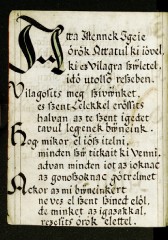 Atya Istennek Igeie
örök Attatul ki iövel,
ki es Vilagra születet,
idö utolso reszeben.
Vilagosits meg szivünket
es szent Lelekkel erössits
halvan az te szent igedet
tavul legenek bűneink.
Hogy mikor el iösz itelni,
minden szü titkait ki venni,
advan minden iot az ioknac
az gonoszoknac götrelmet
Akkor az mi bűneinkert
ne vesd el szent szined elöl,
de minket az igazakkal,
reszesits örök elettel.